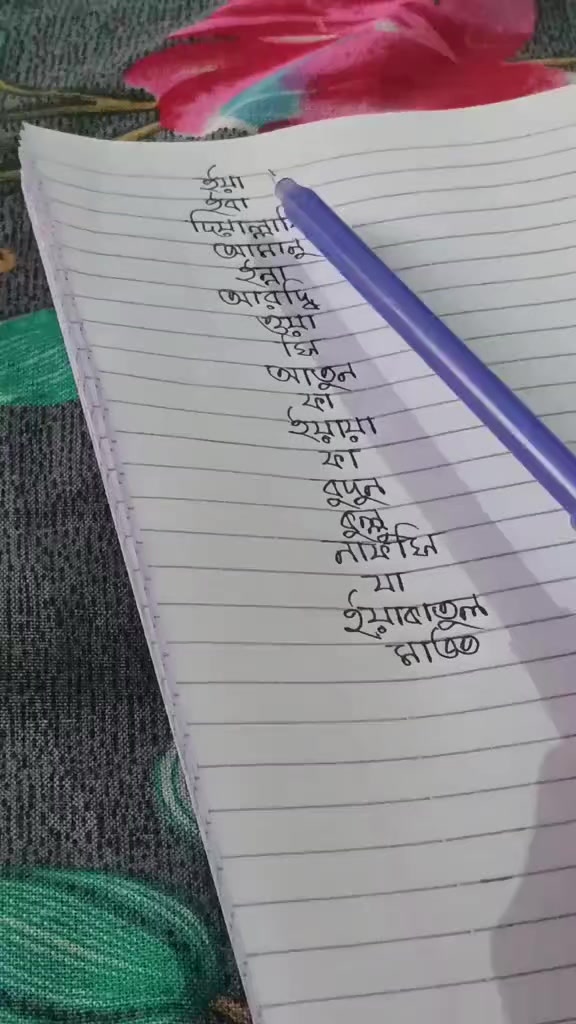 ইয়া
ইবা
দিয়াল্লাযি
আমানু
ইন্না
আরদ্বি
ওয়া
ছি
আতুন
ফা
ইয়্যায়া
ফা
বুদুন
কুল্লু
নাফছি
যা
ইয়াকাতুল
মাউত